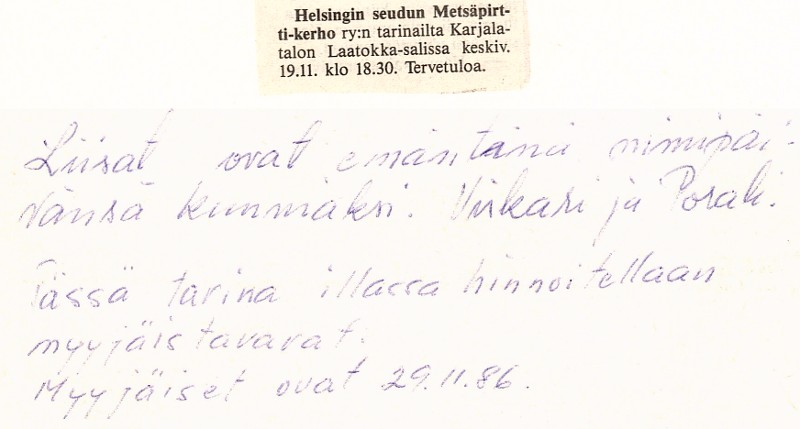 Helsingin seudun Metsäpirt-
ti-kerho ry:n tarinailta Karjala-
talon Laatokka-salissa keskiv.
19.11. klo 18.30. Tervetuloa.
Liisat ovat emäntinä nimipäi-
vänsä kunniaksi. Viskari ja Posali.
Tässä tarina illassa hinnoitellaan
myyjäistavarat.
Myyjäiset ovat 29.11.86.